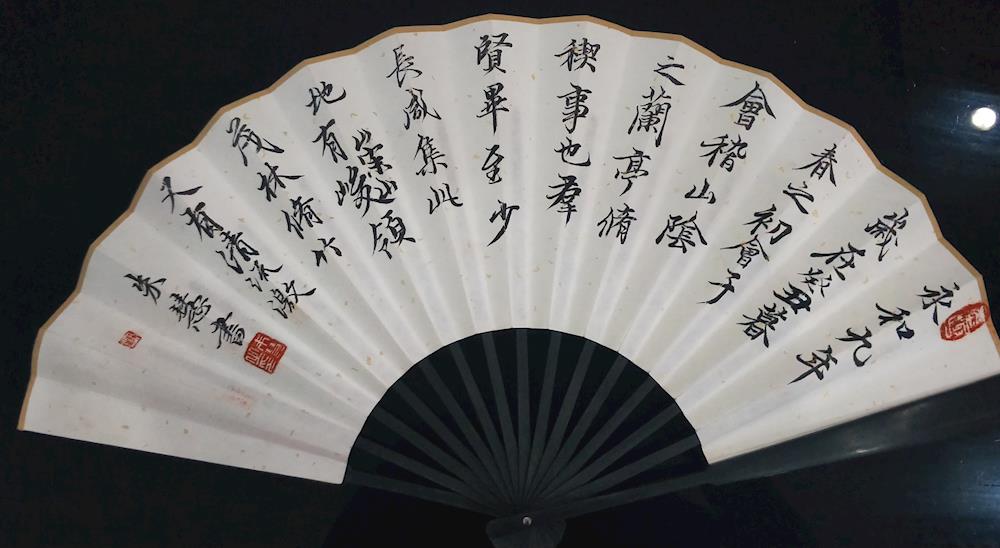 永和九年
歲在癸丑暮
春之初會于
會稽山陰
之蘭亭脩
禊事也羣
賢畢至少
長咸集此
地有崇山峻領
茂林脩竹
又有清流激
朱慧書